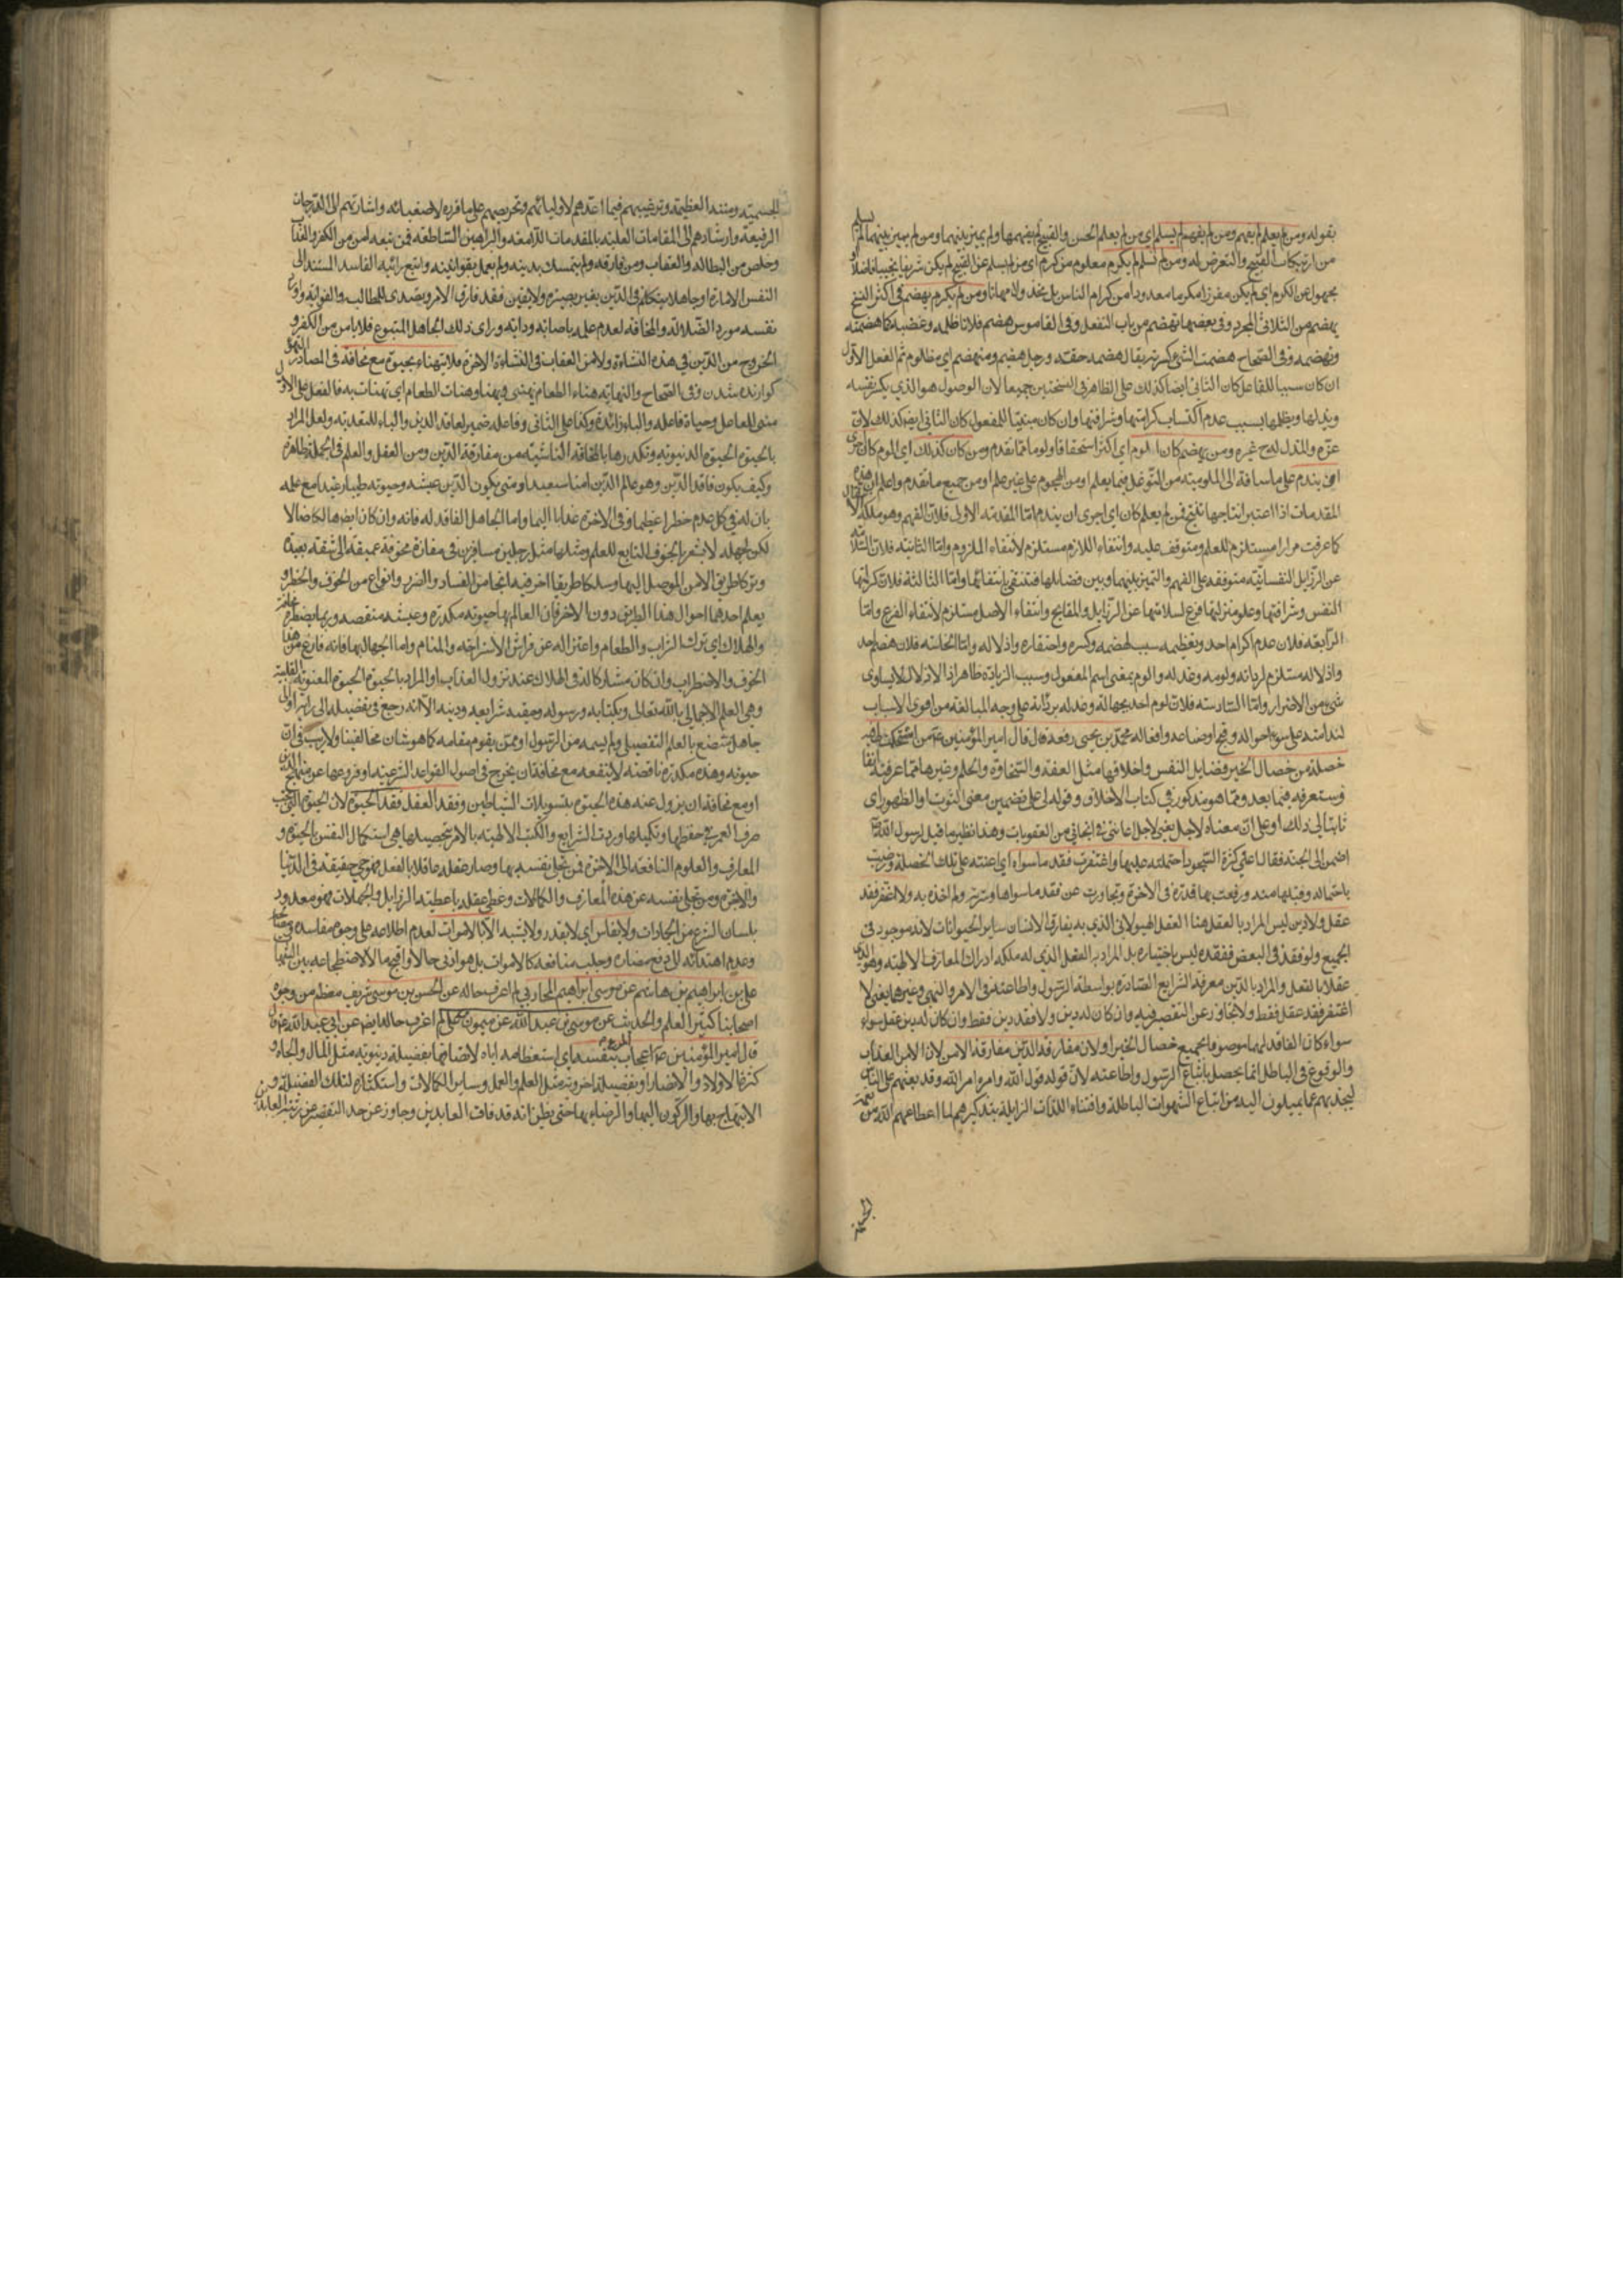 بقوله ومن لم يعلم لم يفهم ومن لم يفهم لم يسلم اي من لم يعلم الحسن والقبيح لم يفهمها ولم يميز بينهما ومن لم يميز بينهما لم يسلم
من ارتكاب القبيح والتعرض له ومن لم يسلم لم يكرم معلوم من كرم اي من لم يسلم عن القبيح لم يكن شريفا نجيبا فاضلا
يهضم من الثلاثي المجرد وفي بعضها تهضم من باب التفعل وفي القاموس هضم فلانا ظلمه وغصبه كاهتضمه
وتهضمه وفي الصحاح هضمت الشيء كسرته يقال هضمه حقه ورجل هضيم ومتهضم اي مظلوم ثم الفعل الاول
ان كان مبنيا للفاعل كان الثاني ايضا كذلك على الظاهر في النسختين جميعا لان الموصول هو الذي يكسر نفسه
ويذلها ويظلمها بسبب عدم اكتساب كرامتها وشرافتها وان كان مبنيا للمفعول كان الثاني ايضا كذلك لان
ومن يهضم كان الوم اي اكثر استحقاقا ولوما مما تقدم ومن كان كذلك اي الوم كان احرى
المقدمات اذا اعتبر انتاجها تنتج فمن لم يعلم كان اي احرى ان يندم اما المقدمة الاولى فلان الفهم وهو ملكة الانتقال
كما عرفت مرارا مستلزم للعلم ومتوقف عليه وانتفاء اللازم مستلزم لانتفاء الملزوم واما الثانية فلان السلامة
عن الرذايل النفسانية متوقفة على الفهم والتميز بينهما وبين فضايلها فتنتفي بانتفائها واما الثالثة فلان كرامة
النفس وشرافتها وعلو منزلتها فرع لسلامتها عن الرذايل والمقابح وانتفاء الاصل مستلزم لانتفاء الفرع واما
الرابعة فلان عدم اكرام احد وتعظيمه سبب لهضمه وكسره واحتقاره واذلاله واما الخامسة فلان هضم احد
شيء من الاضرار واما السادسة فلان لوم احد بجهالة وعذله برذالة على وجه المبالغة من اقوى الاسباب
لندامته على سوء احواله وقبح اوضاعه وافعاله محمد بن يحيى رفعه قال قال امير المؤمنين ع من استحكمت لي فيه
خصلة من خصال الخير فضايل النفس واخلاقها مثل العفة والسخاوة والحلم وغيرها مما عرفته آنفا
وستعرفه فيما بعد ومما هو مذكور في كتاب الاخلاق وقوله لي على تضمين معنى الثبوت او الظهور اي
ثابتا لي ذلك او على ان معناه لاجل
احتملته عليها واغتفرت فقد ما سواه اي اعنته على تلك الخصلة ورضيت
ولا اغتفر فقد
عقل ولا دين ليس المراد بالعقل هنا العقل الهيولاني الذي به يفارق الانسان ساير الحيوانات لانه موجود في
الجميع ولو فقد في البعض ففقده ليس باختياره بل المراد به العقل الذي له ملكة ادراك المعارف الالهية وهو الذي
عقلا بالفعل والمراد بالدين معرفة الشرايع الصادرة بواسطة الرسول واطاعته في الامر والنهي وغيرهما يعني لا
اغتفر فقد عقل فقط ولا اتجاوز عن التقصير فيه وان كان له دين ولا فقد دين فقط وان كان له عقل سواء
سواء كان الفاقد لهما موصوفا بجميع خصال الخير او لا لان مفارقة الدين مفارقة الامن لان الامن من العذاب
والوقوع في الباطل انما يحصل باتباع الرسول واطاعته لان قوله قول الله وامره امر الله وقد بعثهم على الناس
ليجذبهم عما يميلون اليه من اتباع الشهوات الباطلة واقتناء اللذات الزايلة بتذكيرهم لما اعطاهم الله من نعمته
الجسيمة ومننه العظيمة وترغيبهم فيما اعد لهم لاوليائهم وتحريصهم على ما قرره لاصفيائه واشارتهم الى الدرجات
الرفيعة وارشادهم الى المقامات العلية بالمقدمات اللامعة والبراهين الساطعة فمن تبعه امن من الكفر والعذاب
وخلص من البطالة والعقاب ومن فارقه ولم يتمسك بدينه ولم يعمل بقوانينه واتبع رأيه الفاسد المستند الى
النفس الامارة او جاهلا يتكلم في الدين بغير بصيرة ولا يقين فقد فارق الامن وتصدى للمطالب والفواية واورد
نفسه مورد الضلالة والمخافة لعدم علمه باصابته
الخروج من الدين في هذه النشأة ولا من العقاب في النشأة الاخرة فلا يتهناء بحيوة مع مخافة في المصادر التهنؤ
كوارنده شدن وفي الصحاح والنهاية هناء الطعام
بالحيوة الحيوة الدنيوية وتكدرها بالمخافة الناشئة من مفارقة الدين ومن العقل والعلم في الجملة ظاهرة
وكيف يكون فاقد الدين وهو عالم الدين امنا سعيدا ومتى يكون الدين عيشه وحيوته طيبا رغيدا مع علمه
بان له في كل عدم خطرا عظيما وفي الاخرة عذابا اليما واما الجاهل الفاقد له فانه وان كان ايضا هالكا ضالا
لكن لجهله لا يشعر بالخوف التابع للعلم ومثلهما مثل رجلين مسافرين في مفازة مخوفة عميقة الى شقة بعيدة
وتركا طريق الامن الموصل اليها وسلكا طريقا اخر فيه انحاء من الفساد والضرر وانواع من الخوف والخطر و
يعلم احدهما احوال هذا الطريق دون الاخر فان العالم بها حيوته مكدرة وعيشه منغصة وربما يضطره
والهلاك اي ترك الشراب والطعام واعتزاله عن فراش الاستراحة والمنام واما الجاهل بها فانه فارغ من هذا
الخوف والاضطراب وان كان مشاركا له في الهلاك عند نزول العذاب او المراد بالحيوة الحيوة المعنوية القلبية
وهي العلم الاجمالي بالله تعالى وبكتابه ورسوله وحقية شرايعه ودينه الا انه رجع في تفصيله الى رأيه او الى
جاهل متصنع بالعلم التفصيلي ولم يسمه من الرسول او ممن يقوم مقامه كما هو شان مخالفينا ولا ريب في ان
حيوته وهذه مكدرة ناقصة لا تنفعه مع مخافة ان يخرج في اصول القواعد الشرعية وفروعها عن منهج الدين
او مع مخافة ان يزول عنه هذه الحيوة بتسويلات الشياطين وفقد العقل فقد الحيوة لان الحيوة التي يجب
صرف العمر في حفظها وتكميلها ووردت الشرايع والكتب الالهية بالامر بتحصيلها هي استكمال النفس بالحيوة و
المعارف والعلوم النافعة الى الاخرة فمن تحلى نفسه بها وصار عقله عاقلا بالفعل فهو حي حقيقة في الدنيا
والاخرة ومن تخلى نفسه عن هذه المعارف والكمالات وغطى عقله باغطية الرذايل والجهالات فهو معدود
بلسان الشرع من الجمادات ولا يقاس اي لا يقدر ولا يشبه الا بالاموات لعدم اطلاعه على وجوه مفاسده ومصالحه
وعدم اهتدائه الى دفع مضاره وجلب منافعه كالاموات بل هو ادنى حالا واقبح مآلا
علي بن ابراهيم بن هاشم عن موسى بن ابراهيم المحاربي لم اعرف حاله عن الحسن بن موسى شريف معظم من وجوه
اصحابنا كثير العلم والحديث عن موسى بن عبد الله عن ميمون بن علي لم اعرف حاله ايضا عن ابي عبد الله ع قال
قال امير المؤمنين ع اعجاب المرء بنفسه اي استعظامه اياه لاتصافها بفضيلة دنيوية مثل المال والجاه و
كثرة الاولاد والانصار او بفضيلة اخروية مثل العلم والعمل وساير الكمالات واستكثاره لتلك الفضيلة و
الابتهاج بها والركون اليها والرضاء بها حتى يظن انه قد فاق العابدين وجاوز عن حد التقصير